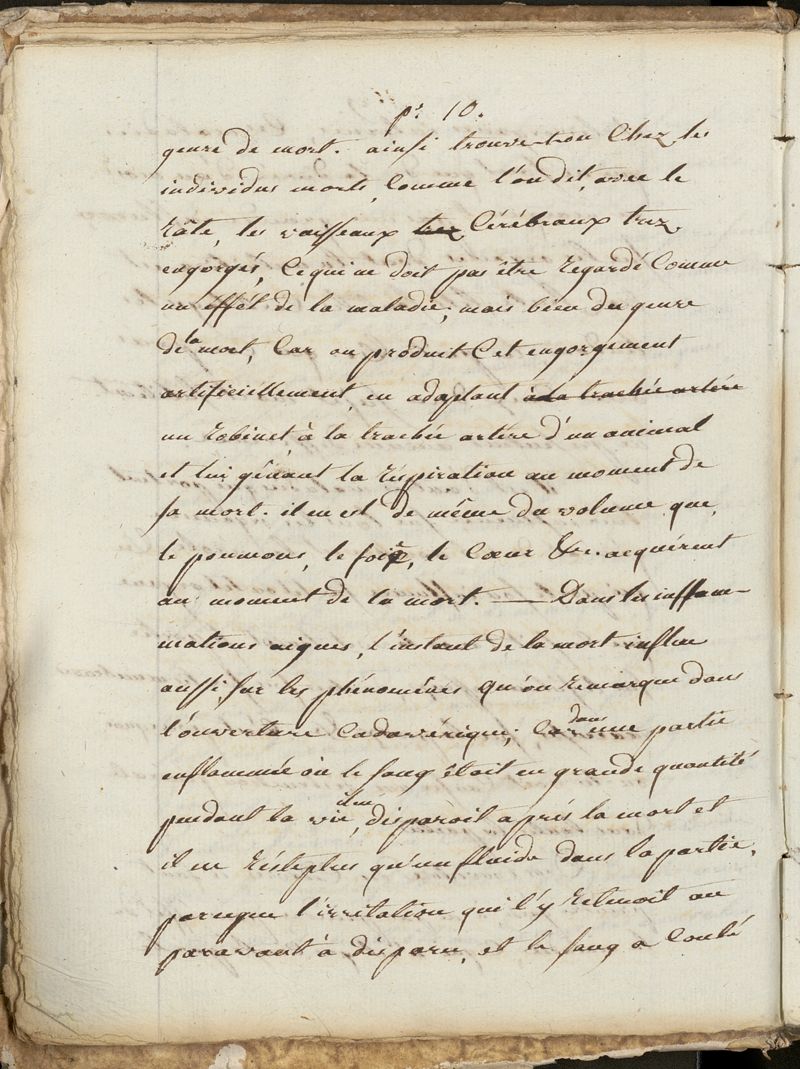 pe 10.
genre de mort. ainsi trouve-t-on Chez les
individus morts, Comme l'on dit, avec le
râle, les vaisseaux trez Cérébraux trez
engorgés, Ce qui ne doit pas être regardé Comme
un éffét de la maladie, mais bien du genre
de la mort, Car on produit Cet engorgement
artificiellement, en adaptant à la trachée artère
un Robinet à la trachée artère d'un animal
et lui gênant la Réspiration au moment de
sa mort. il en est de même du volume que
le poumons, le foie, le Cœur &c. acquièrent
au moment de la mort. — Dans les inflam-
mations aigues, l'instant de la mort influe
aussi sur les phénomènes qu'on Remarque dans
l'ouverture Cadavérique; Car dans une partie
enflammée où le sang étoit en grande quantité
pendant la vie, il en disparoit après la mort et
il ne réste plus qu'un fluide dans la partie,
parceque l'irritation qui l'y Retenoit au
paravant à disparu, et le sang a Coulé